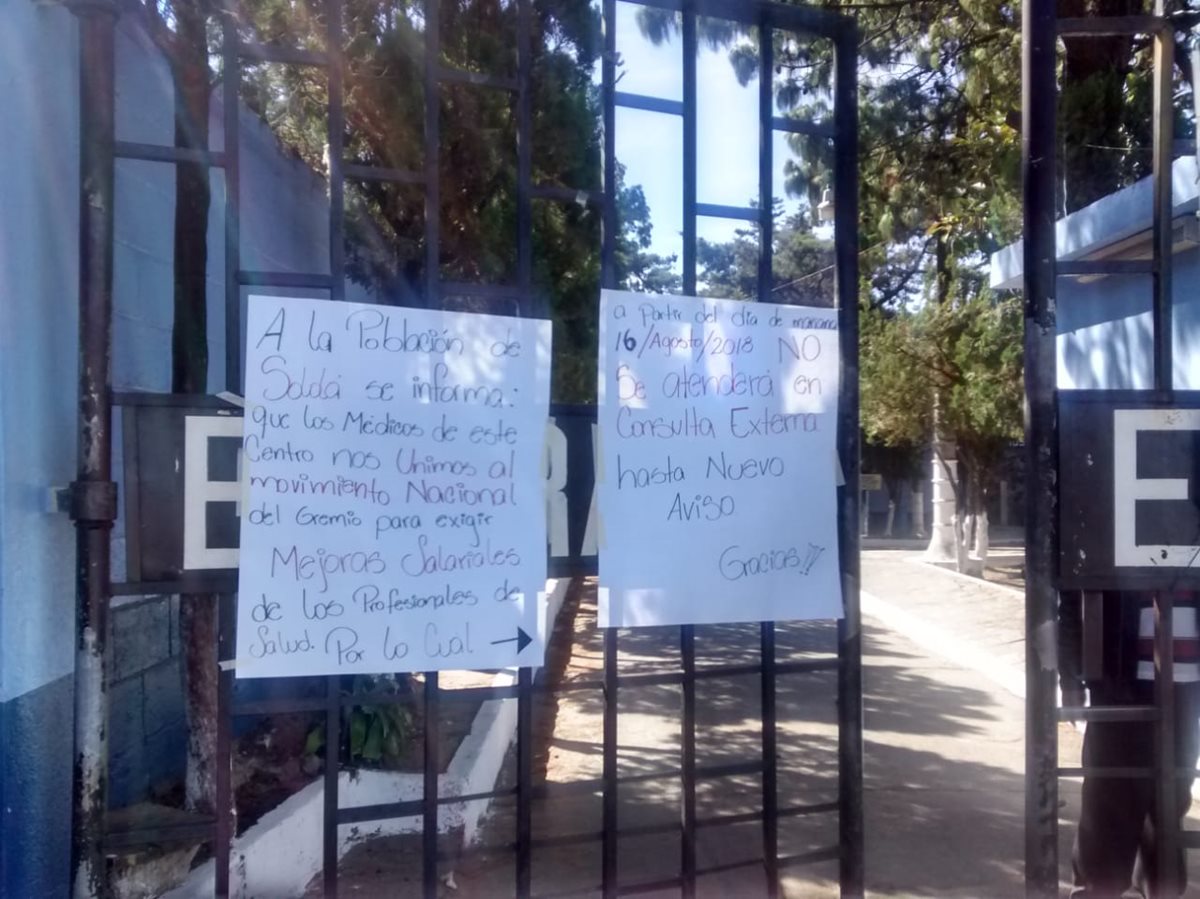 A la Población de
Sololá se informa:
que los Médicos de este
Centro nos Unimos al
movimiento Nacional
del Gremio para exigir
Mejoras Salariales
de los Profesionales de
Salud. Por lo Cual →
a partir del día de mañana
16/Agosto/2018 NO
Se atenderá en
Consulta Externa
hasta Nuevo
Aviso
Gracias!!!
E
E